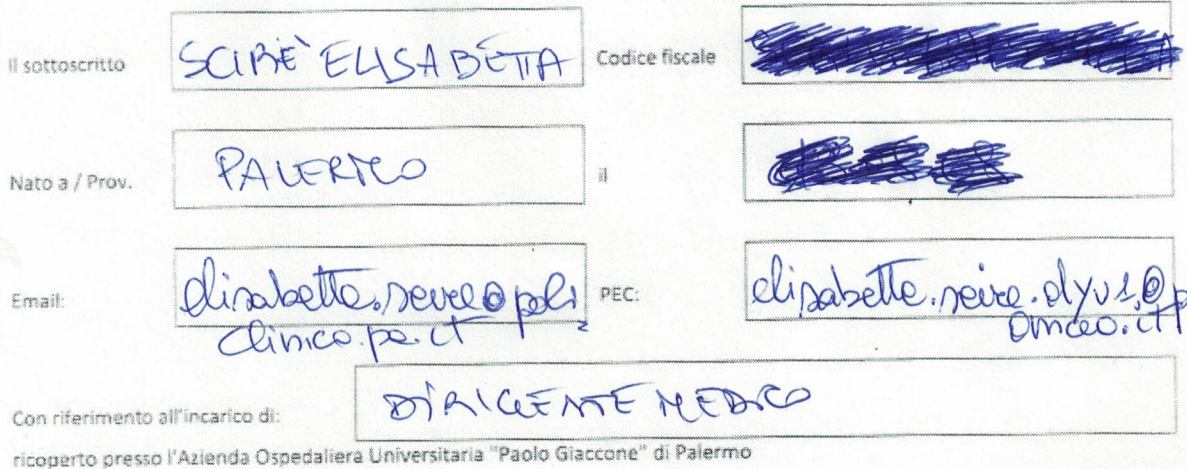 Il sottoscritto SCIRE' ELISABETTA Codice fiscale
Nato a / Prov. PALERMO il
Email: elisabetta.scire@poli PEC: elisabetta.scire.
clinico.pa.it
Con riferimento all'incarico di: DIRIGENTE MEDICO
ricoperto presso l'Azienda Ospedaliera Universitaria "Paolo Giaccone" di Palermo